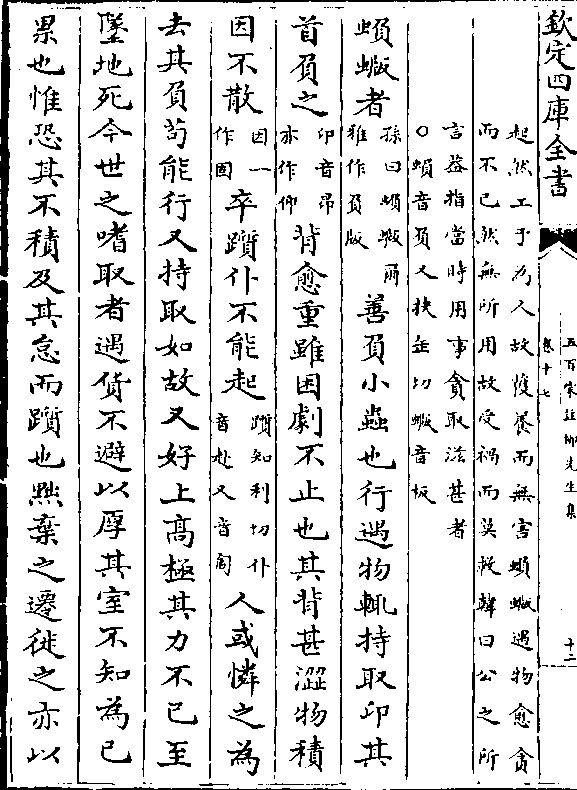 欽定四庫全書
五百家註柳先生集
卷十七
十二
起然工于為人故獲養而無害蝜蝂遇物愈貪
而不已然無所用故受禍而莫救韓曰公之所
言益指當時用事貪取滋甚者
○蝜音負又扶缶切蝂音板
蝜蝂者孫曰蝜蝂爾雅作負版善負小蟲也行遇物輒持取卬其
首負之卬音昂亦作仰背愈重雖困劇不止也其背甚澀物積
因不散因一作固卒躓仆不能起躓知利切仆音赴又音匐人或憐之為
去其負茍能行又持取如故又好上髙極其力不已至
墜地死今世之嗜取者遇貨不避以厚其室不知為己
累也惟恐其不積及其怠而躓也黜棄之遷徙之亦以